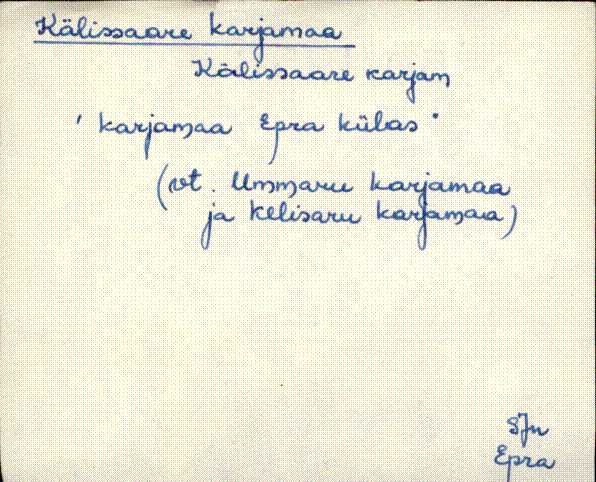 Kälissaare karjamaa
Kälissaare karjam
' karjamaa Epra külas '
(vt. Ummaru karjamaa
ja Kelisaru karjamaa)
SJn
Epra